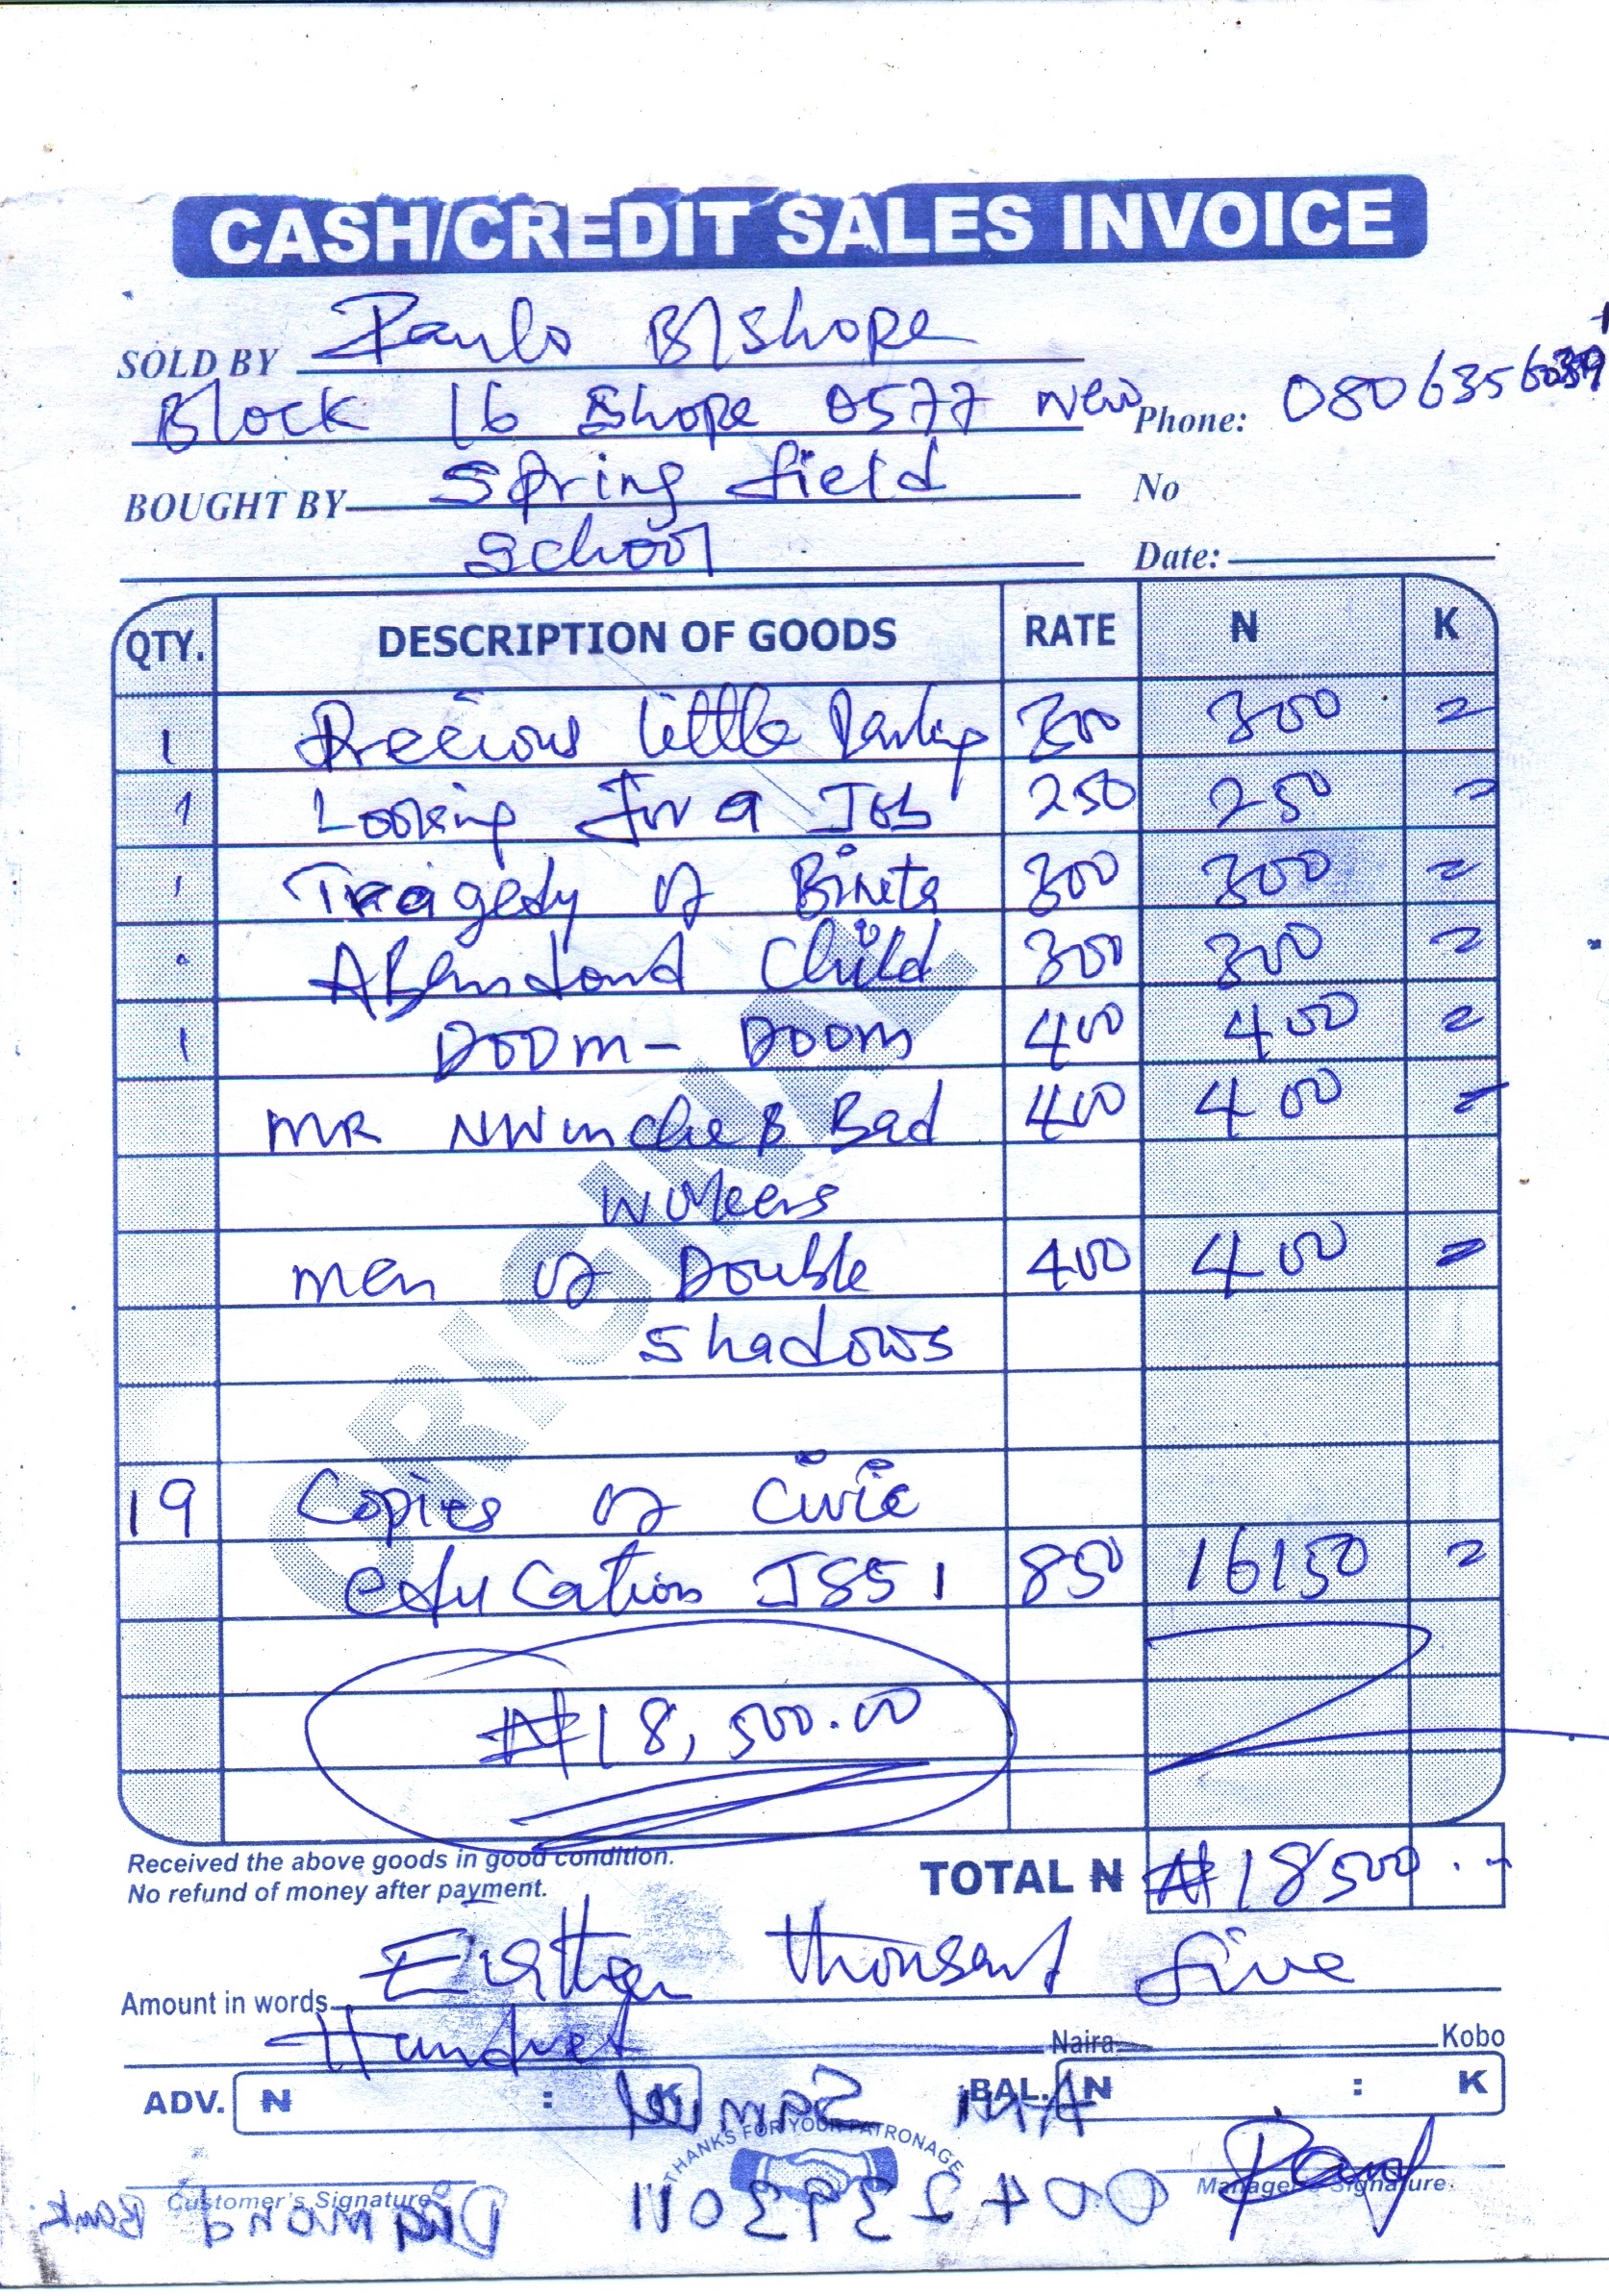 CASH/CREDIT SALES INVOICE
SOLD BY Paulo B/Shope
Block 16 Shope 0577 New Phone: 0806356
BOUGHT BY Spring field No
School Date:
QTY. DESCRIPTION OF GOODS RATE N K
1 Precious little 300 300 =
1 Looking For a Job 250 250 =
1 Tragedy of Bineta 300 300 =
" Abandond Child 300 300 =
1 Doom - Doom 400 400 =
MR Bad 400 400 =
Workers
men of Double 400 400 =
Shadows
19 Copies of Civic
education JSS 1 850 16150 =
₦18,500.00
Received the above goods in good condition.
No refund of money after payment.
TOTAL N ₦18500.-
Amount in words Eighteen thousand five
Hundred Naira Kobo
ADV. N : K BAL. N : K
Samuel
THANKS FOR YOUR PATRONAGE
Customer's Signature Manager's Signature
0042393011 Diamond Bank